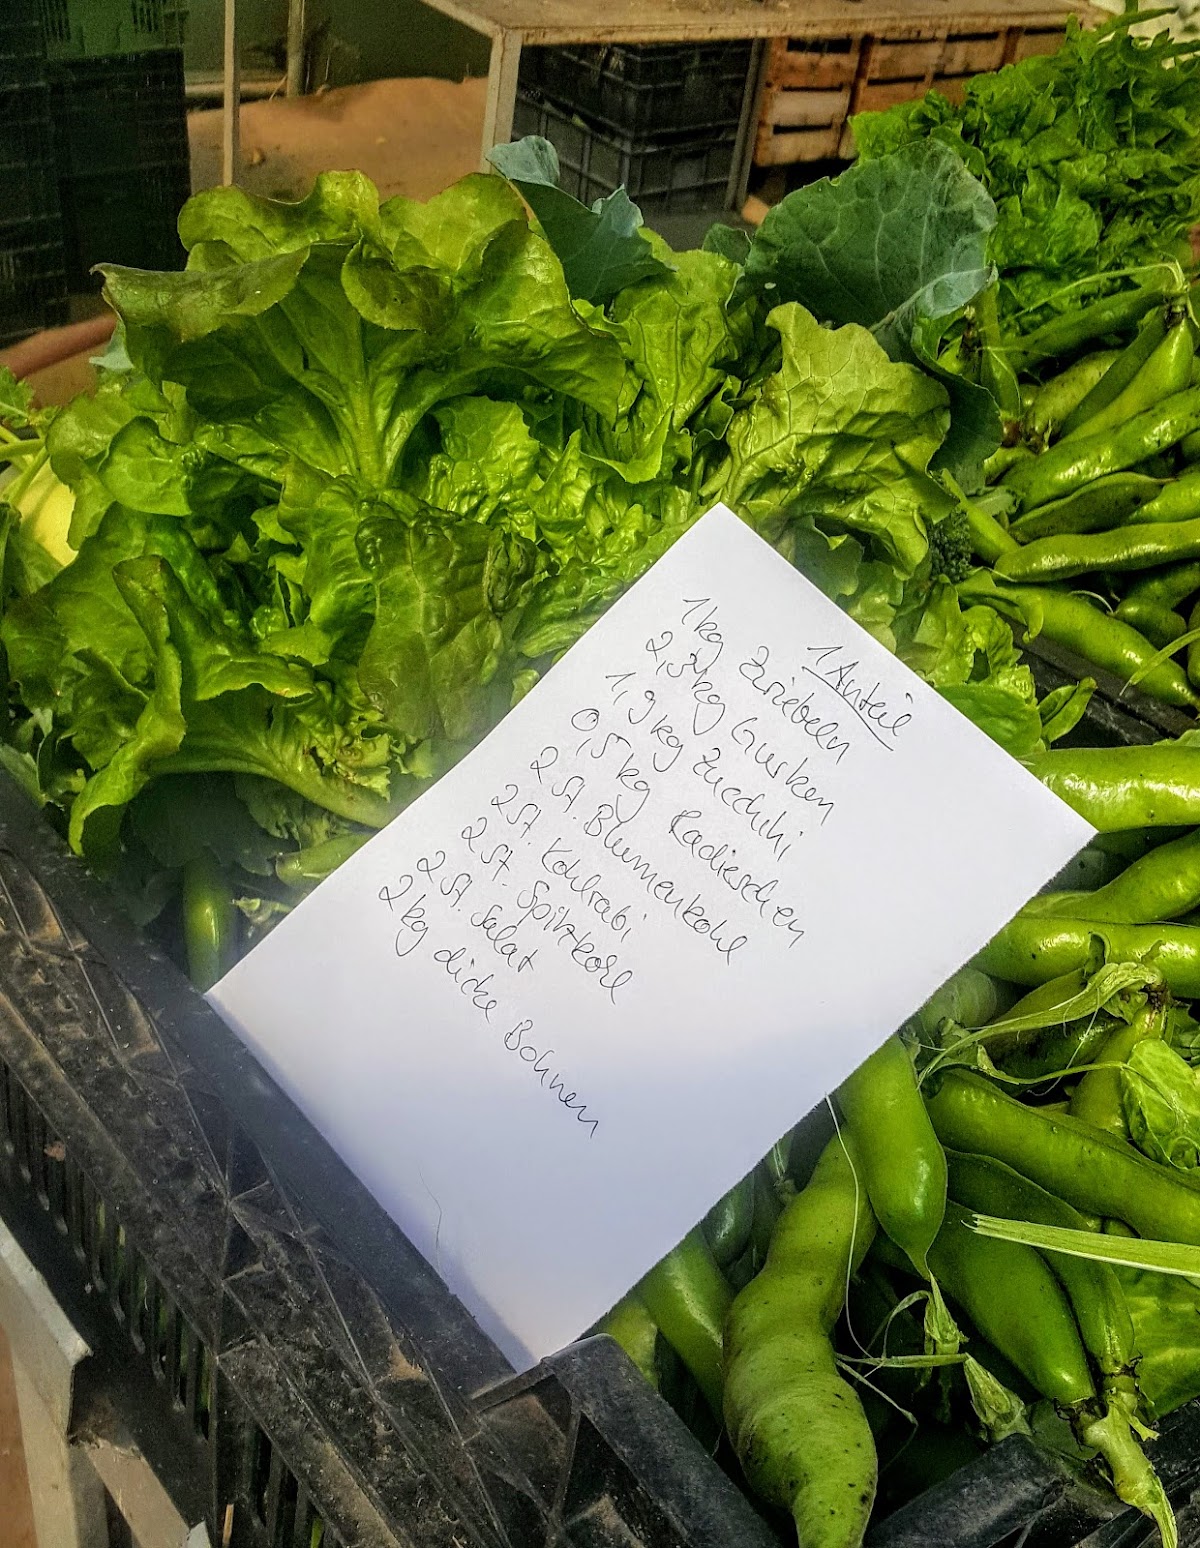 1 Anteil
1kg Zwiebeln
2,3kg Gurken
1,9kg Zucchini
0,5kg Radieschen
2 St. Blumenkohl
2 St. Kohlrabi
2 St. Spitzkohl
2 St. Salat
2kg dicke Bohnen